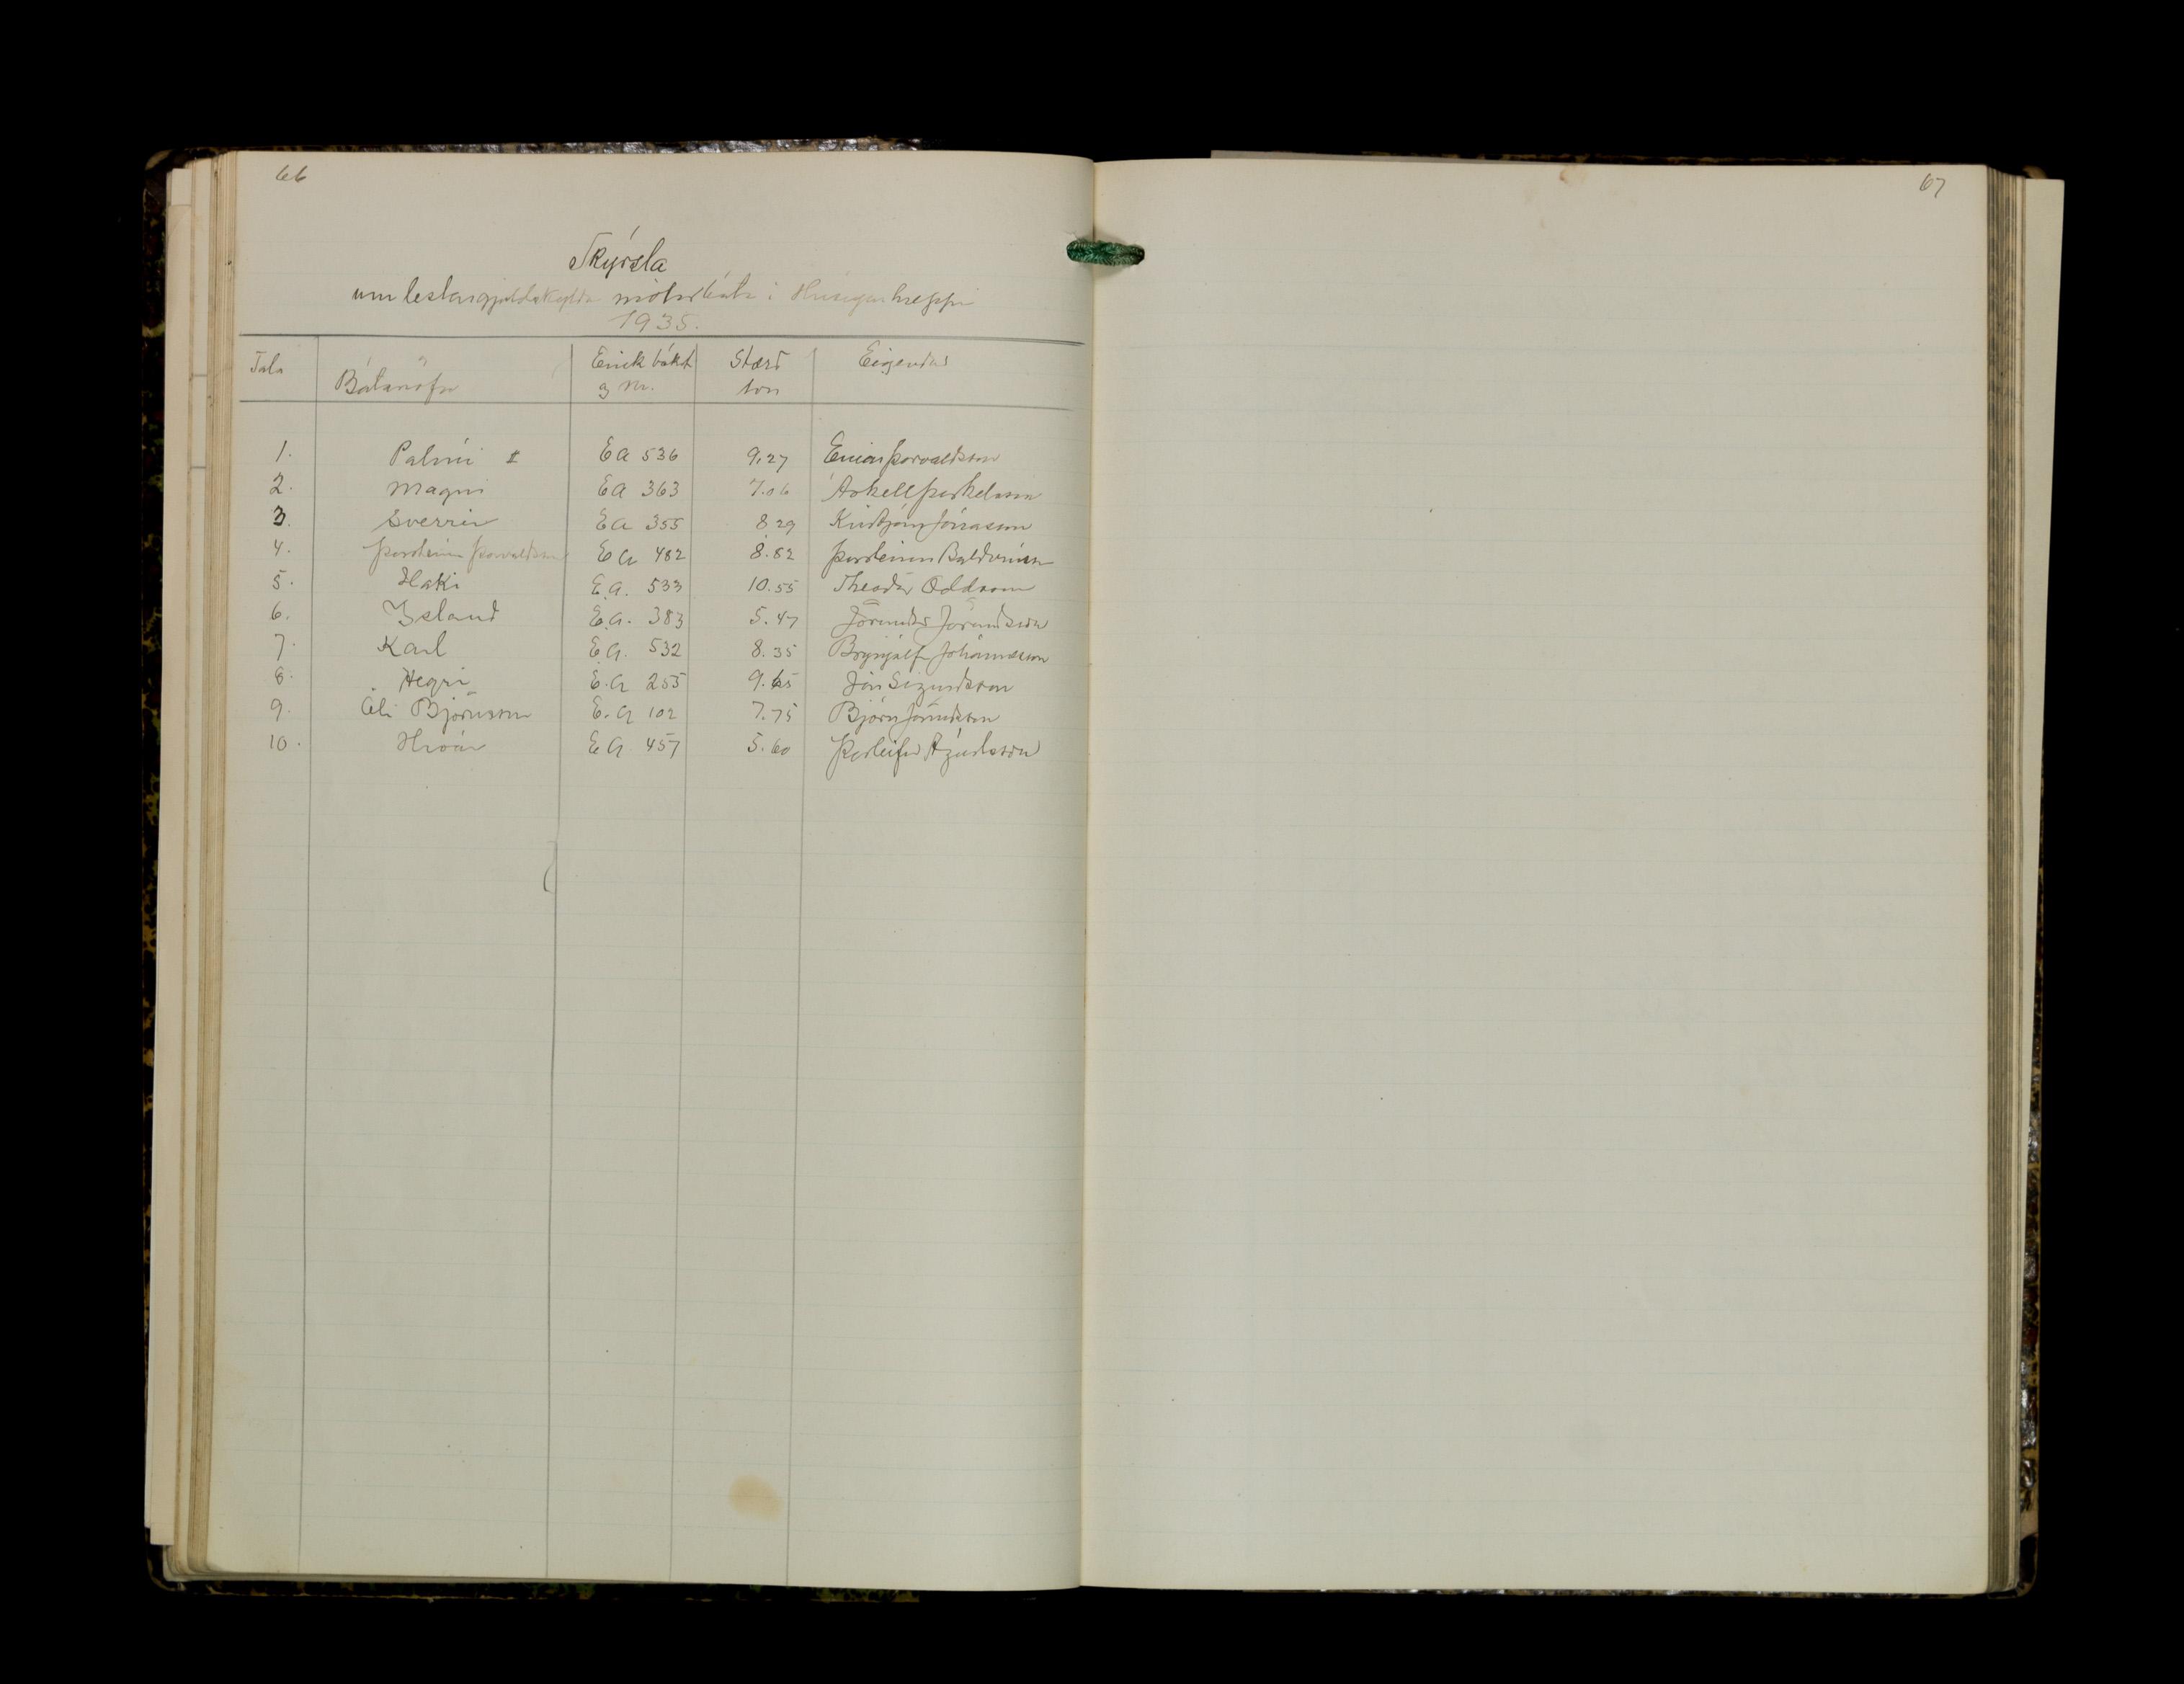 66
67
Skýrsla
um lestargjaldskylda mótorbáta í Hríseyjarhreppi
1935.
Tala Bátanöfn Eink bókst og Nr. Stærð ton Eigendur
1. Palmi II EA 536 9,27 Einar Þorvaldsson
2. Magni EA 363 7.06 Áskell Þorkelsson
3. Sverrir EA 355 8 29 Kristján Jónasson
4. Þorsteinn Þorvaldsson EA 482 8.82 Þorsteinn Baldvinsson
5. Haki E.A. 533 10.55 Theodór Oddsson
6. Island E.A. 383 5.47 Jörundur Jörundsson
7. Karl E.A. 532 8.35 Brynjólfr Jóhannesson
8. Hegri E.A 255 9.65 Jón Sigurdsson
9. Óli Björnsson E.A 102 7.75 Björn Jörundsson
10. Hróar EA. 457 5.60 Þorleifur Ágústsson